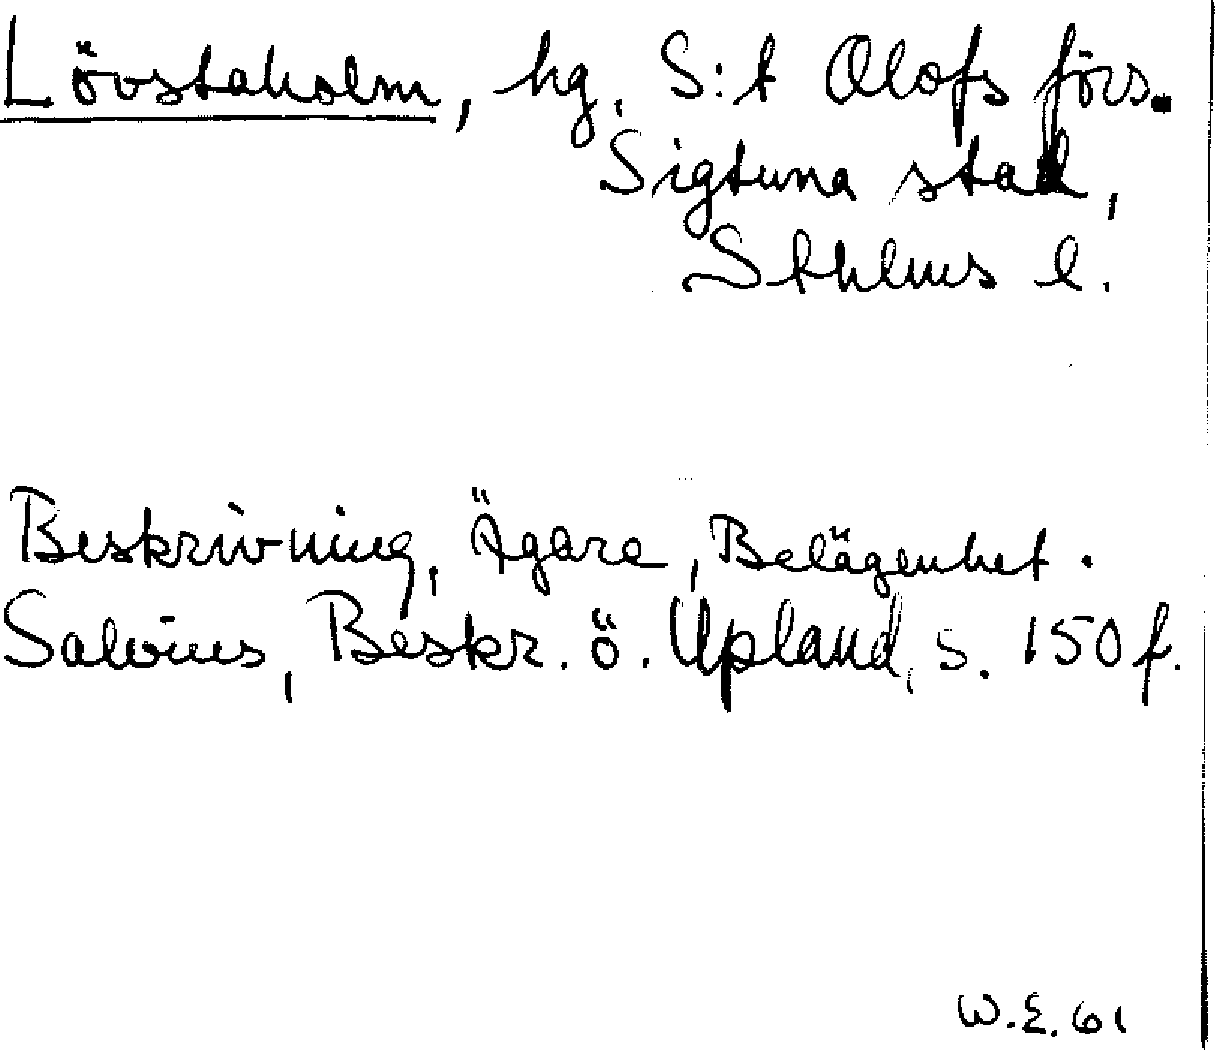 Lövstaholm, hg, S:t Olofs förs.
Sigtuna stad,
Sthlms l.
Beskrivning, Ägare, Belägenhet.
Salvius, Beskr. ö. Upland, s. 150 f.
W.E. 61